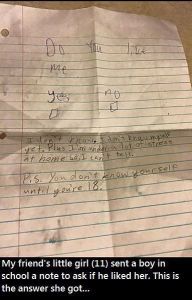 Do You like
me
yes no
I don't know. I don't know myself
yet, Plus I'm under a lot of stress
at home so I can't
P.S. You don't know yourself
until you're 18.
My friend's little girl (11) sent a boy in
school a note to ask if he liked her. This is
the answer she got...